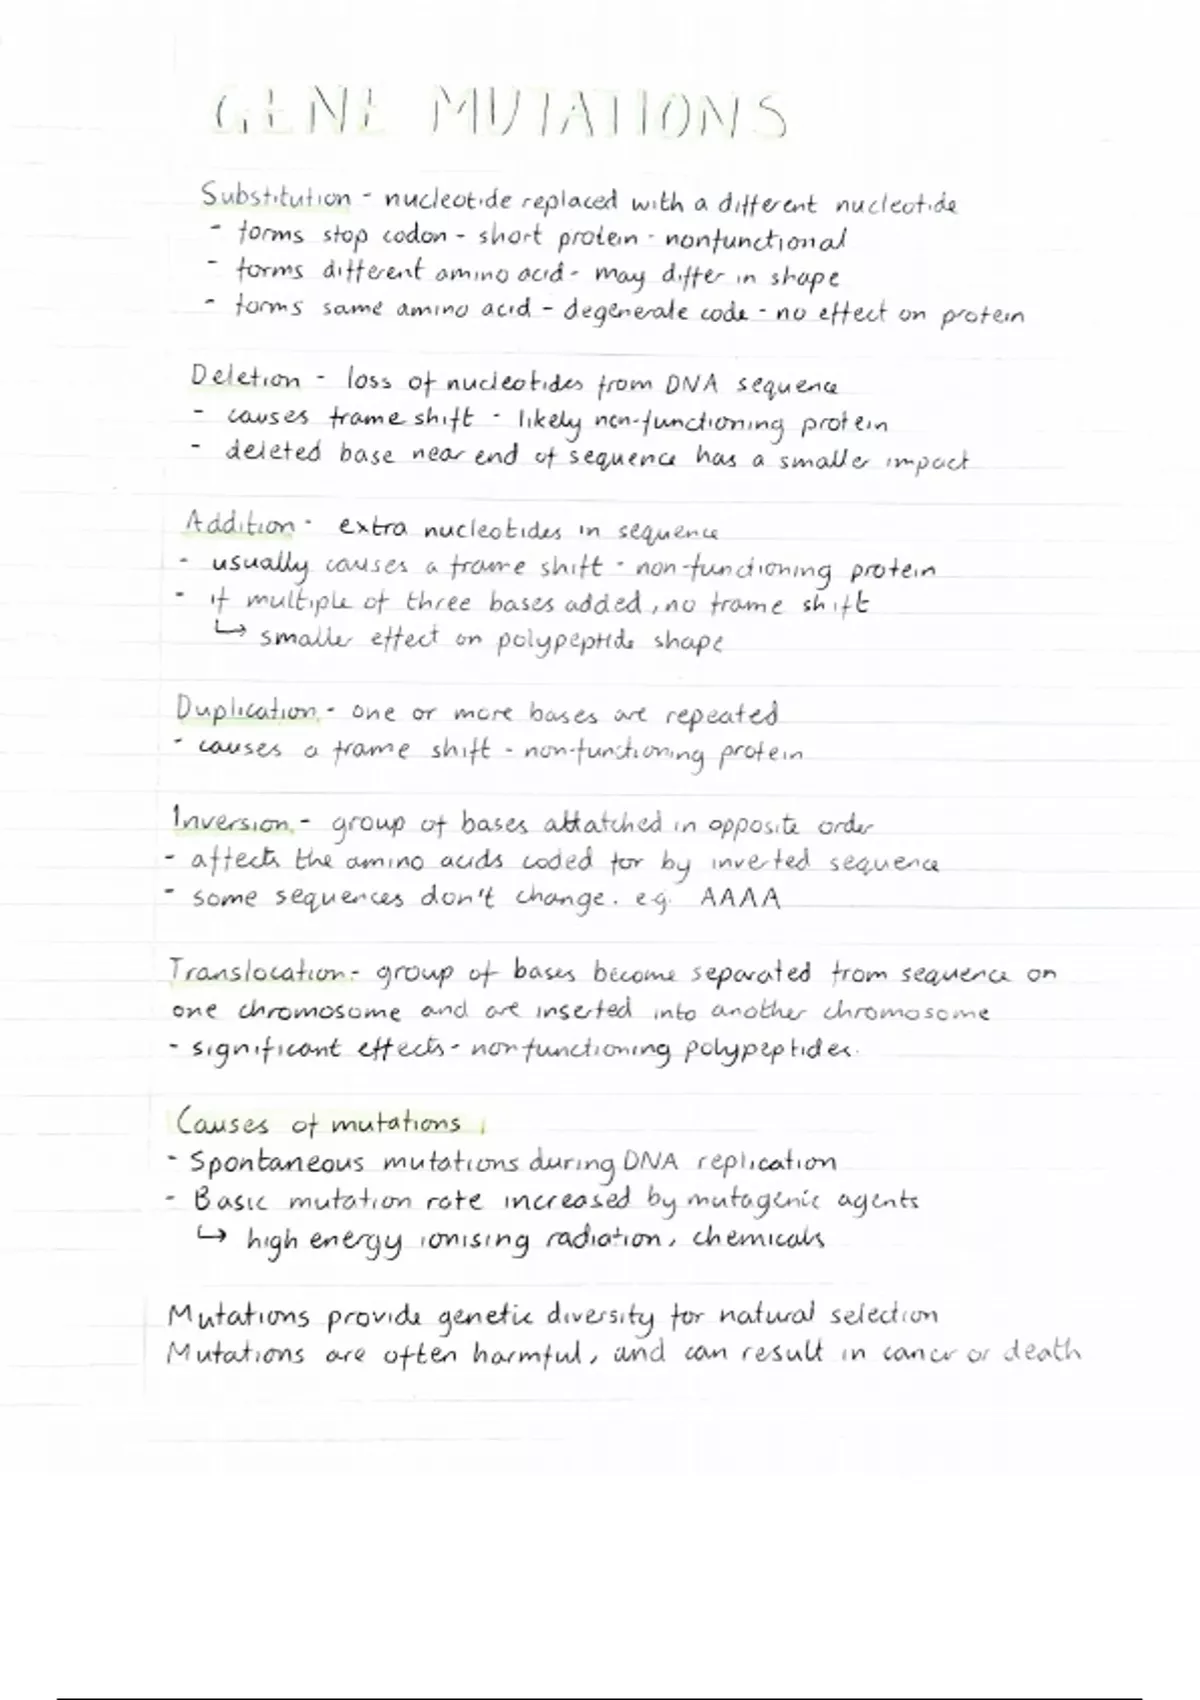 GENE MUTATIONS
Substitution - nucleotide replaced with a different nucleotide
- forms stop codon - short protein - nonfunctional
- forms different amino acid - may differ in shape
- forms same amino acid - degenerate code - no effect on protein
Deletion - loss of nucleotides from DNA sequence
- causes frame shift - likely non-functioning protein
- deleted base near end of sequence has a smaller impact
Addition - extra nucleotides in sequence
- usually causes a frame shift - non-functioning protein
- if multiple of three bases added, no frame shift
↳ smaller effect on polypeptide shape
Duplication - one or more bases are repeated
- causes a frame shift - non-functioning protein
Inversion - group of bases attatched in opposite order
- affects the amino acids coded for by inverted sequence
- some sequences don't change. e.g. AAAA
Translocation - group of bases become separated from sequence on
one chromosome and are inserted into another chromosome
- significant effects - nonfunctioning polypeptides.
Causes of mutations
- Spontaneous mutations during DNA replication
- Basic mutation rate increased by mutagenic agents
↳ high energy ionising radiation, chemicals
Mutations provide genetic diversity for natural selection
Mutations are often harmful, and can result in cancer or death